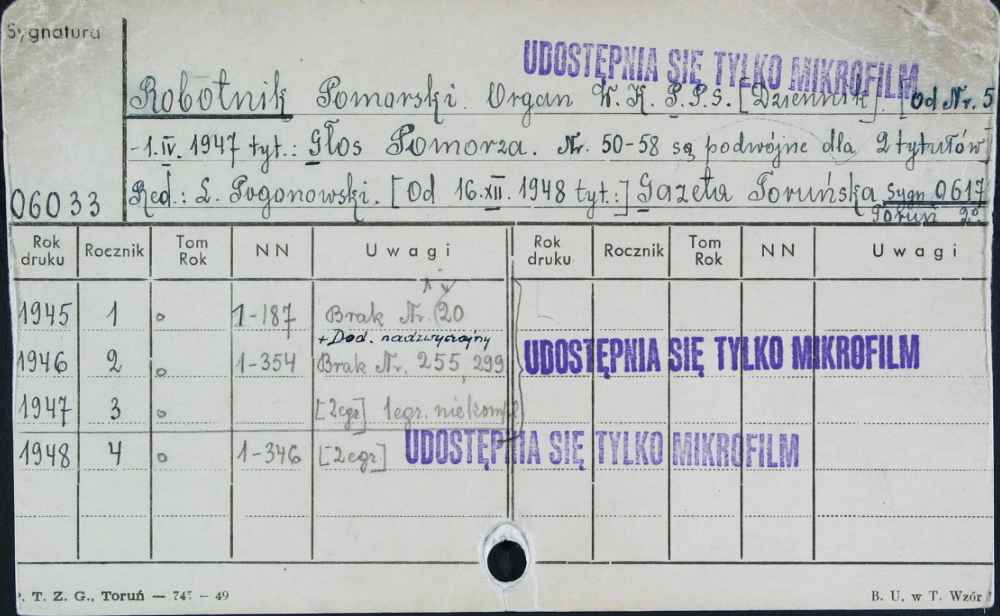 Sygnatura
UDOSTĘPNIA SIĘ TYLKO MIKROFILM
Robotnik Pomorski. Organ W. K. P.P.S. [Dziennik]. [Od Nr. 5
-1.IV. 1947 tyt.: Głos Pomorza. Nr. 50-58 są podwójne dla 2 tytułów]
06033
Red.: L. Pogonowski. [Od 16.XII. 1948 tyt.:] Gazeta Toruńska Sygn 0617
Toruń 2°
Rok druku Rocznik Tom Rok NN Uwagi Rok druku Rocznik Tom Rok NN Uwagi
1945 1 o 1-187 Brak Nr. 20
+ Dod. nadzwyczajny
1946 2 o 1-354 Brak Nr. 255, 299
UDOSTĘPNIA SIĘ TYLKO MIKROFILM
1947 3 o [2egz] 1egz. niekompl
1948 4 o 1-346 [2egz]
UDOSTĘPNIA SIĘ TYLKO MIKROFILM
P. T. Z. G., Toruń — 747 — 49 B. U. w T. Wzór